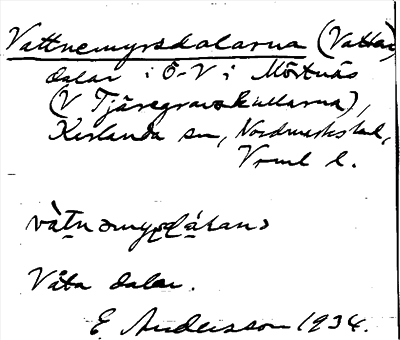 Vattnemyrsdalarna (Vattar)
dalar i Ö-V i Mörtnäs
(V Tjäregravskullarna),
Kislanda sn, Nordmarks hd,
Vrml l.
Våta dalar.
E. Andersson 1934.